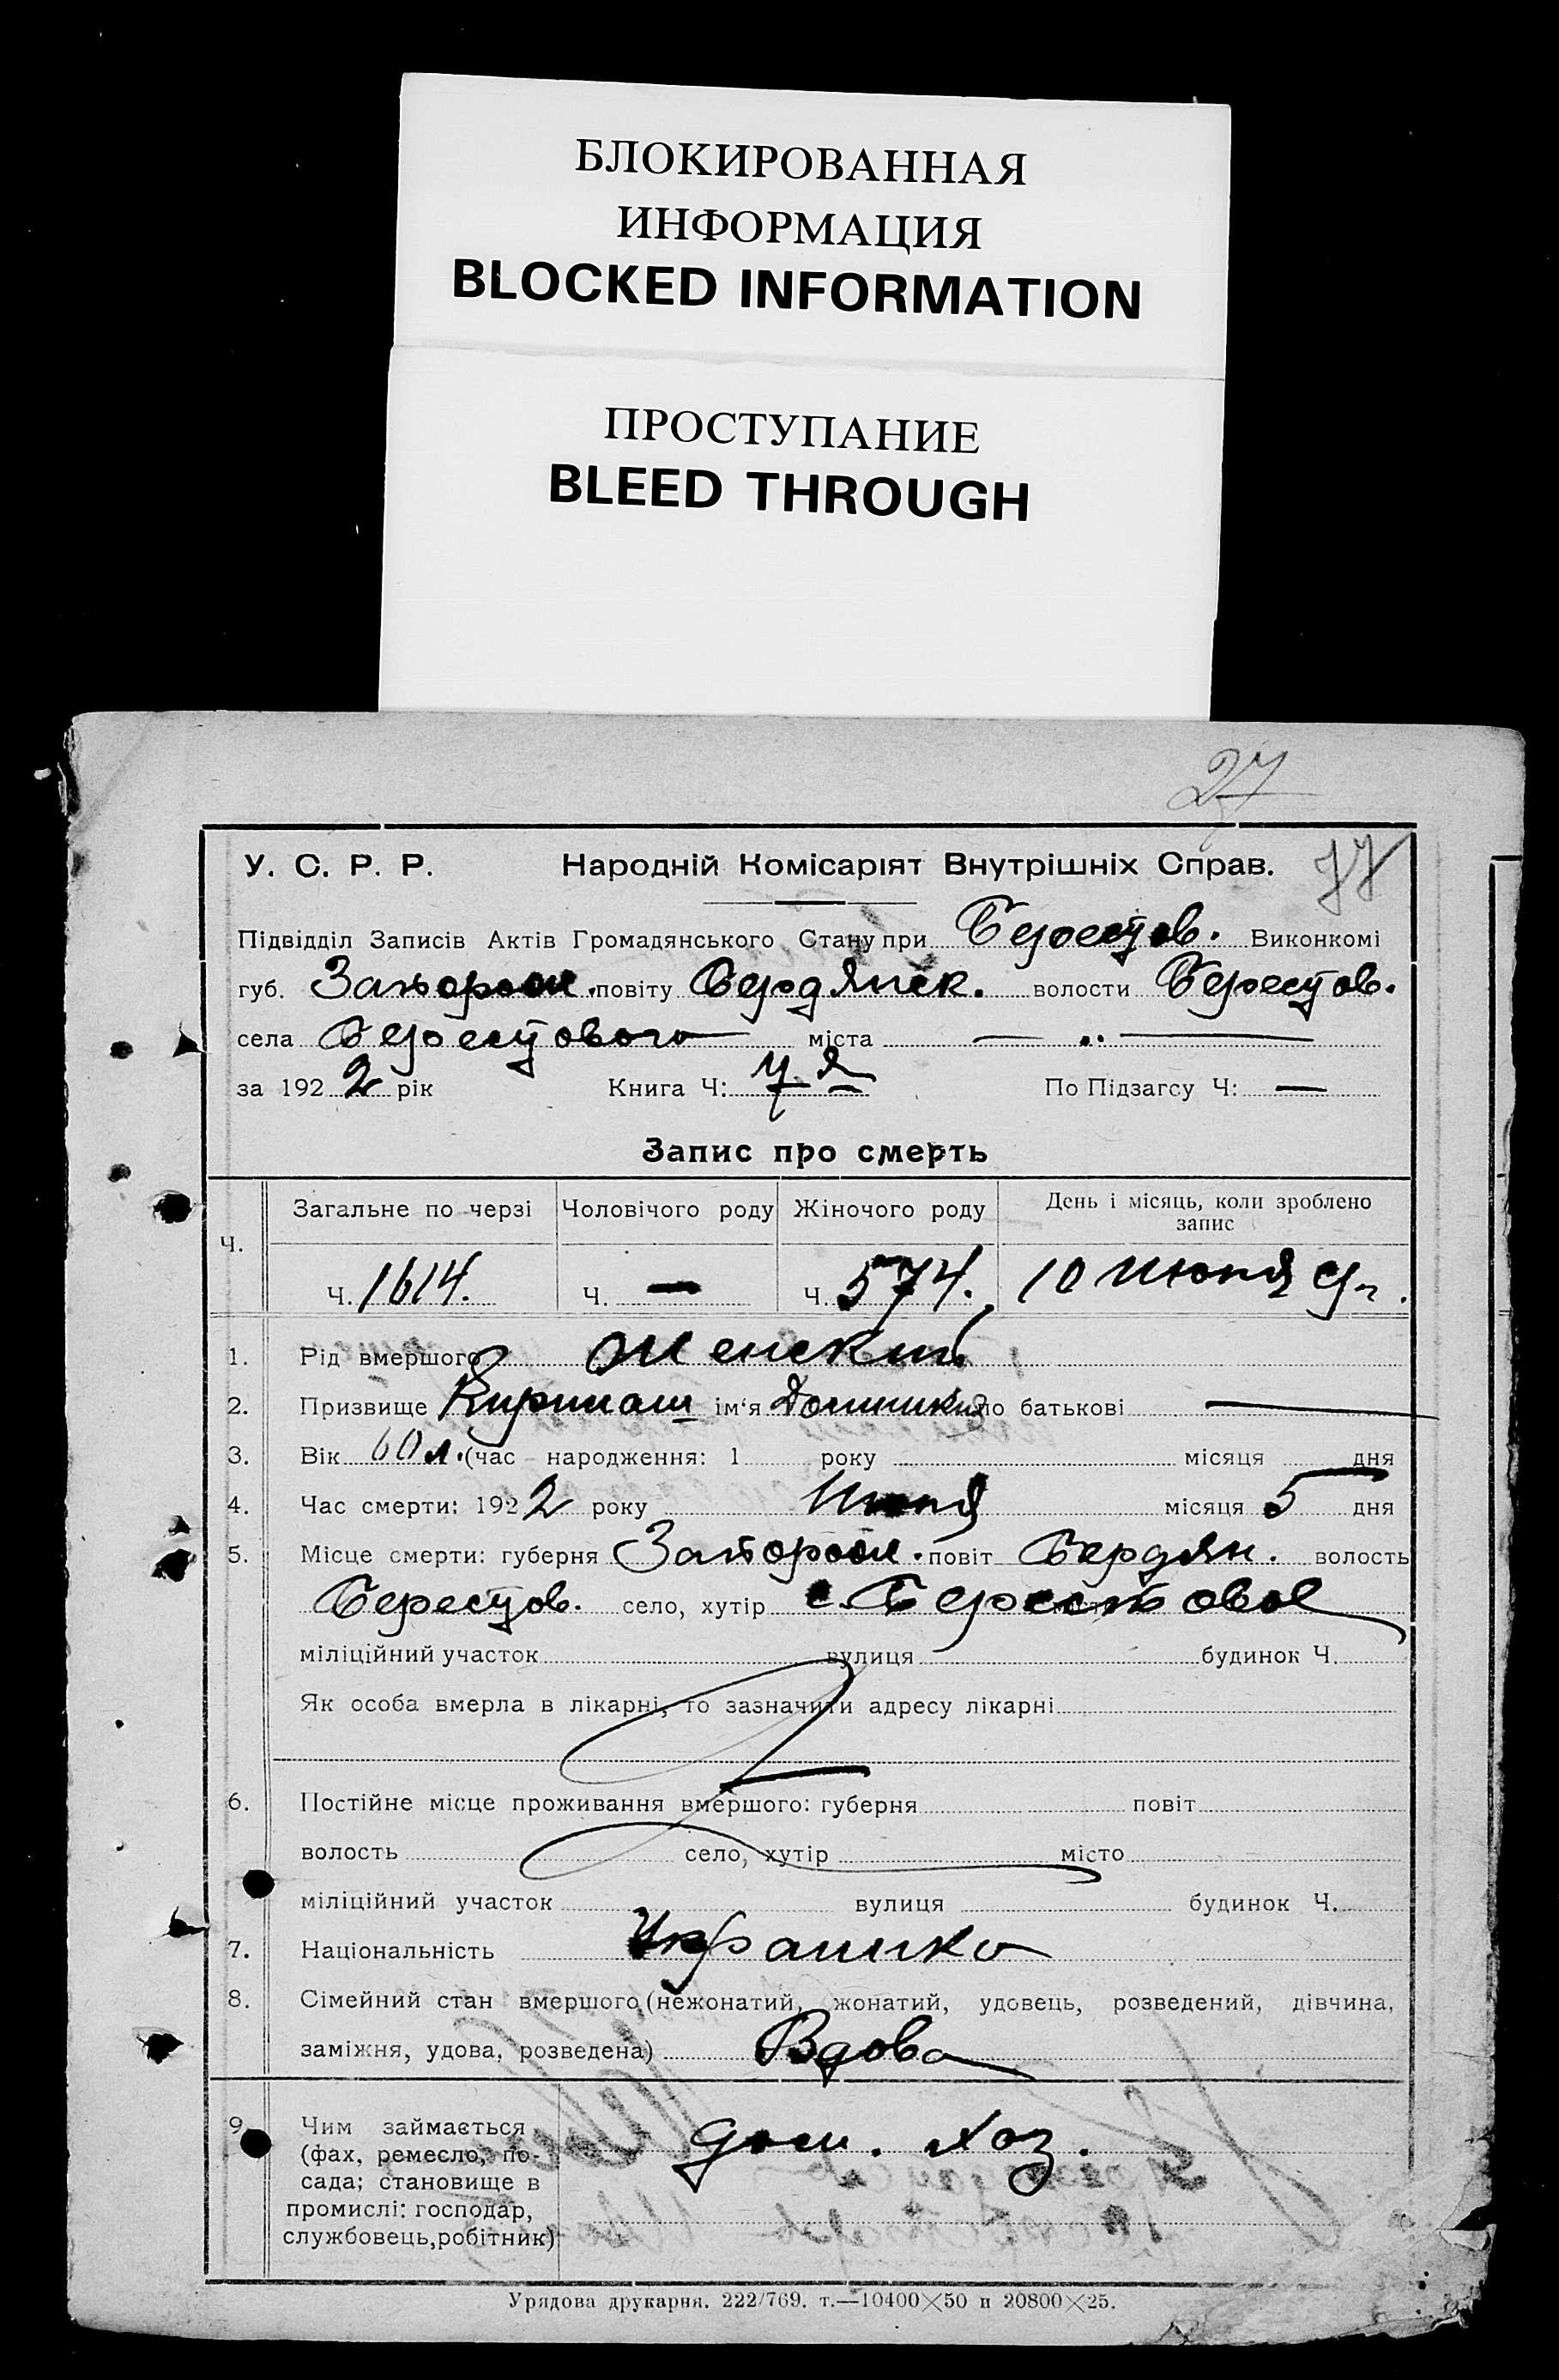 БЛОКИРОВАННАЯ
ИНФОРМАЦИЯ
BLOCKED INFORMATION
ПРОСТУПАНИЕ
BLEED THROUGH
27
77
У. С. Р. Р. Народній Комісаріят Внутрішніх Справ.
Підвідділ Записів Актів Громадянського Стану при Берестов. Виконкомі
губ. Запорож. повіту Бердянск. волости Берестов.
села Берестового міста — „ —
за 1922 рік Книга Ч: По Підзагсу Ч: —
Запис про смерть
Ч. Загальне по черзі Чоловічого роду Жіночого роду День і місяць, коли зроблено
запис
Ч. 1614. Ч. — Ч. 574. 10 Июня
1. Рід вмершого Женский
2. Призвище Кирпаш ім‘я Домникия по батькові —
3. Вік 60 л. (час народження: 1 року місяця дня
4. Час смерти: 1922 року Июня місяця 5 дня
5. Місце смерти: губерня Запорож. повіт Бердян. волость
Берестов. село, хутір с. Берестовое
міліційний участок вулиця будинок Ч.
Як особа вмерла в лікарні, то зазначити адресу лікарні
6. Постійне місце проживання вмершого: губерня повіт
волость село, хутір місто
міліційний участок вулиця будинок Ч.
7. Національність
8. Сімейний стан вмершого (нежонатий, жонатий, удовець, розведений, дівчина,
заміжня, удова, розведена) Вдова
9. Чим займається дом. хоз.
(фах, ремесло, по-
сада; становище в
промислі: господар,
службовець, робітник)
Урядова друкарня. 222/769. т.—10400×50 п 20800×25.